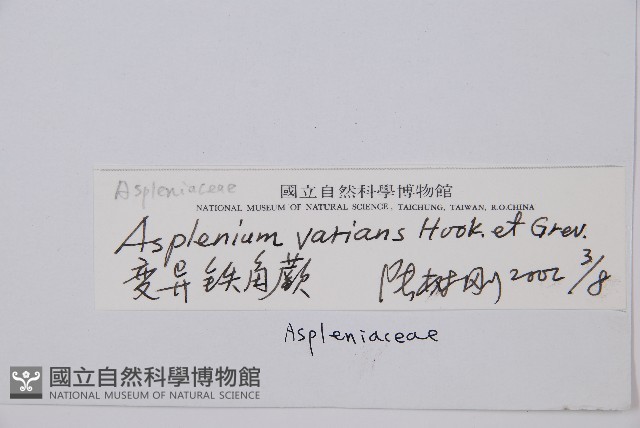 Aspleniaceae
國立自然科學博物館
NATIONAL MUSEUM OF NATURAL SCIENCE, TAICHUNG, TAIWAN, R.O.CHINA
Asplenium varians Hook. et Grev.
变异铁角蕨 陆树刚 2002 3/8
Aspleniaceae
國立自然科學博物館
NATIONAL MUSEUM OF NATURAL SCIENCE